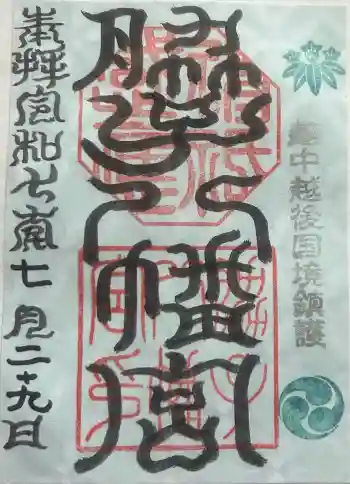 越中越後国境鎮護
脇子八幡宮
奉拝令和七年七月二十九日